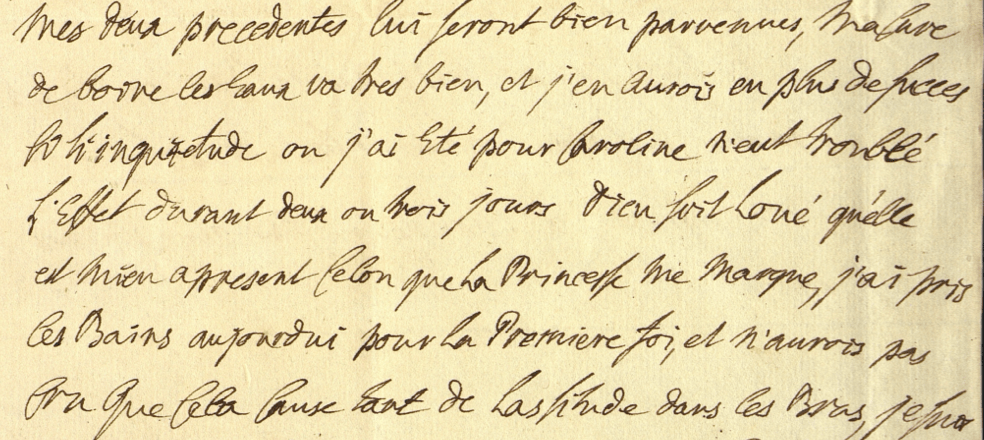 Mes deux precedentes lui seront bien parvenues, Ma Cure
de boire les Eaux va tres bien, et j'en aurois eu plus de succes
si l'inquietude ou j'ai Eté pour Caroline n'eut troublé
l'Effet durant deux ou trois jours Dieu soit Loué qu'elle
est mieu apresent selon que La Princesse me marque, j'ai pris
les Bains aujourdui pour La Premiere foi, et n'aurois pas
Cru que Cela Cause tant de Lassitude dans les Bras, je